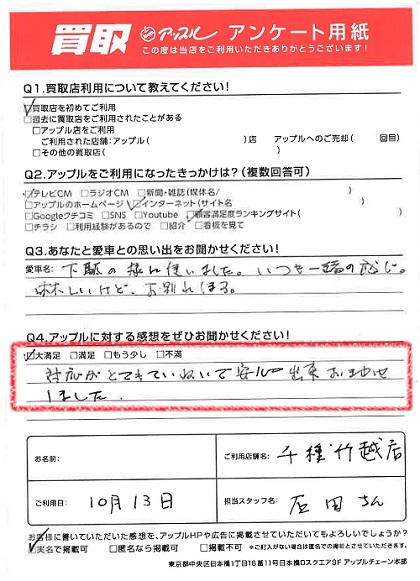 買取 アップル アンケート用紙
この度は当店をご利用いただきありがとうございます!
Q1.買取店利用について教えてください!
☑買取店を初めてご利用
□過去に買取店をご利用されたことがある
□アップル店をご利用
ご利用された店舗:アップル( )店 アップルへのご売却( 回目)
□その他の買取店( )
Q2.アップルをご利用になったきっかけは?(複数回答可)
☑テレビCM □ラジオCM □新聞・雑誌(媒体名/ )
□アップルのホームページ ☑インターネット(サイト名 )
□Googleクチコミ □SNS □Youtube ☑顧客満足度ランキングサイト( )
□チラシ □利用経験があるので □紹介 □看板を見て
Q3.あなたと愛車との思い出をお聞かせください!
愛車名: 下駄の様に使いました。いつも一緒の感じ。
淋しいけど、お別れする。
Q4.アップルに対する感想をぜひお聞かせください!
☑大満足 □満足 □もう少し □不満
対応がとてもていねいで安心出来おまかせ
しました。
お名前:
ご利用店舗名: 千種竹越店
ご利用日: 10月13日
担当スタッフ名: 石田さん
お客様に書いていただいた感想を、アップルHPや広告に掲載させていただいてもよろしいでしょうか?
☑実名で掲載可 □匿名なら掲載可 □掲載不可 ※ご記入がない場合は匿名での掲載とさせていただきます。
東京都中央区日本橋1丁目16番11号日本橋Dスクエア9F アップルチェーン本部